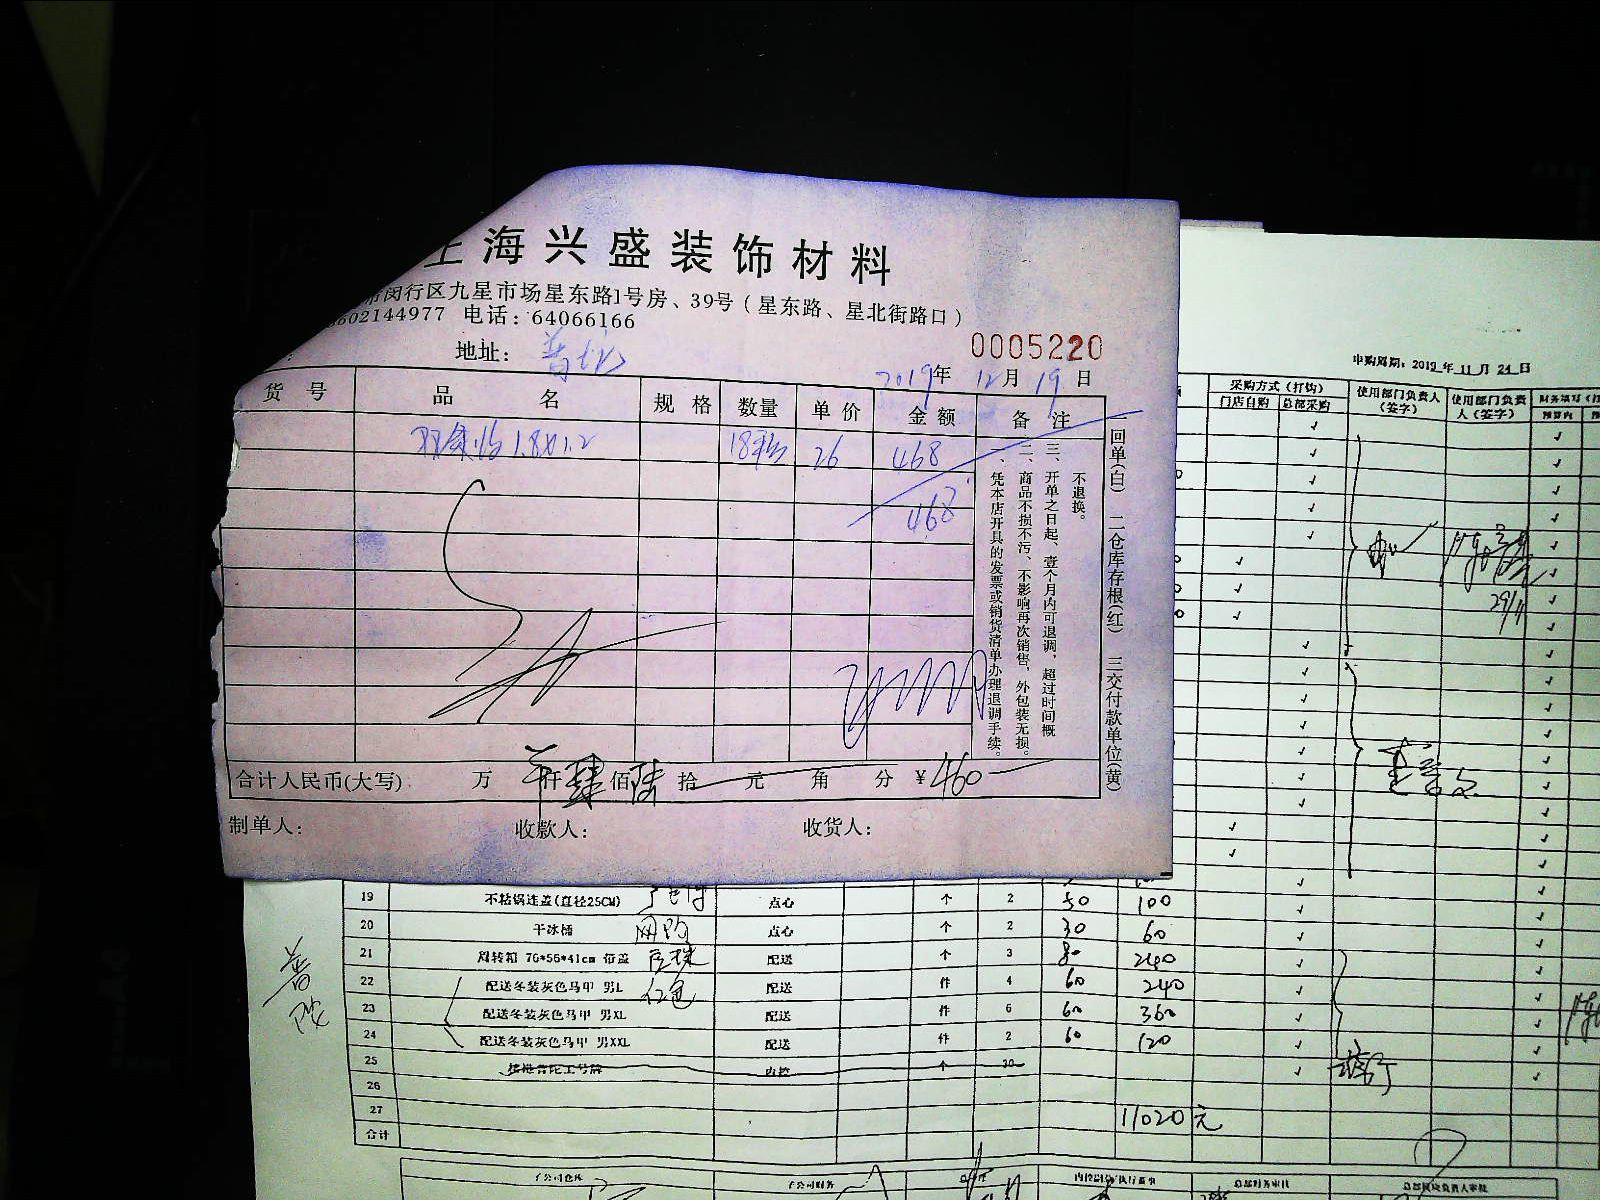 上海兴盛装饰材料
市闵行区九星市场星东路1号房、39号（星东路、星北街路口）
602144977 电话：64066166
地址：普陀
0005220
2019年12月19日
货号 品名 规格 数量 单价 金额 备注
1.8×1.2 18 26 468
468
一、凭本店开具的发票或销货清单办理退调手续。
二、商品不损不污、不影响再次销售，外包装无损。
三、开单之日起、壹个月内可退调，超过时间概
不退换。
回单(白) 二仓库存根(红) 三交付款单位(黄)
合计人民币(大写) 万 仟肆佰陆拾 元 角 分 ¥460
制单人： 收款人： 收货人：
申购周期：2019年11月21日
采购方式（打钩）
门店自购 总部采购
使用部门负责人（签字）
使用部门负责人（签字）
预算内
29/11
19 不粘锅连盖(直径25CM) 点心 个 2 50 100
20 干冰桶 网购 点心 个 2 30 60
21 周转箱 76*56*41cm 带盖 配送 个 3 80 240
22 配送冬装灰色马甲 男L 红色 配送 件 4 60 240
23 配送冬装灰色马甲 男XL 配送 件 6 60 360
24 配送冬装灰色马甲 男XXL 配送 件 2 60 120
25 内控 个 30
26
27 11020元
合计
普陀
子公司仓库 子公司财务 总部财务审核